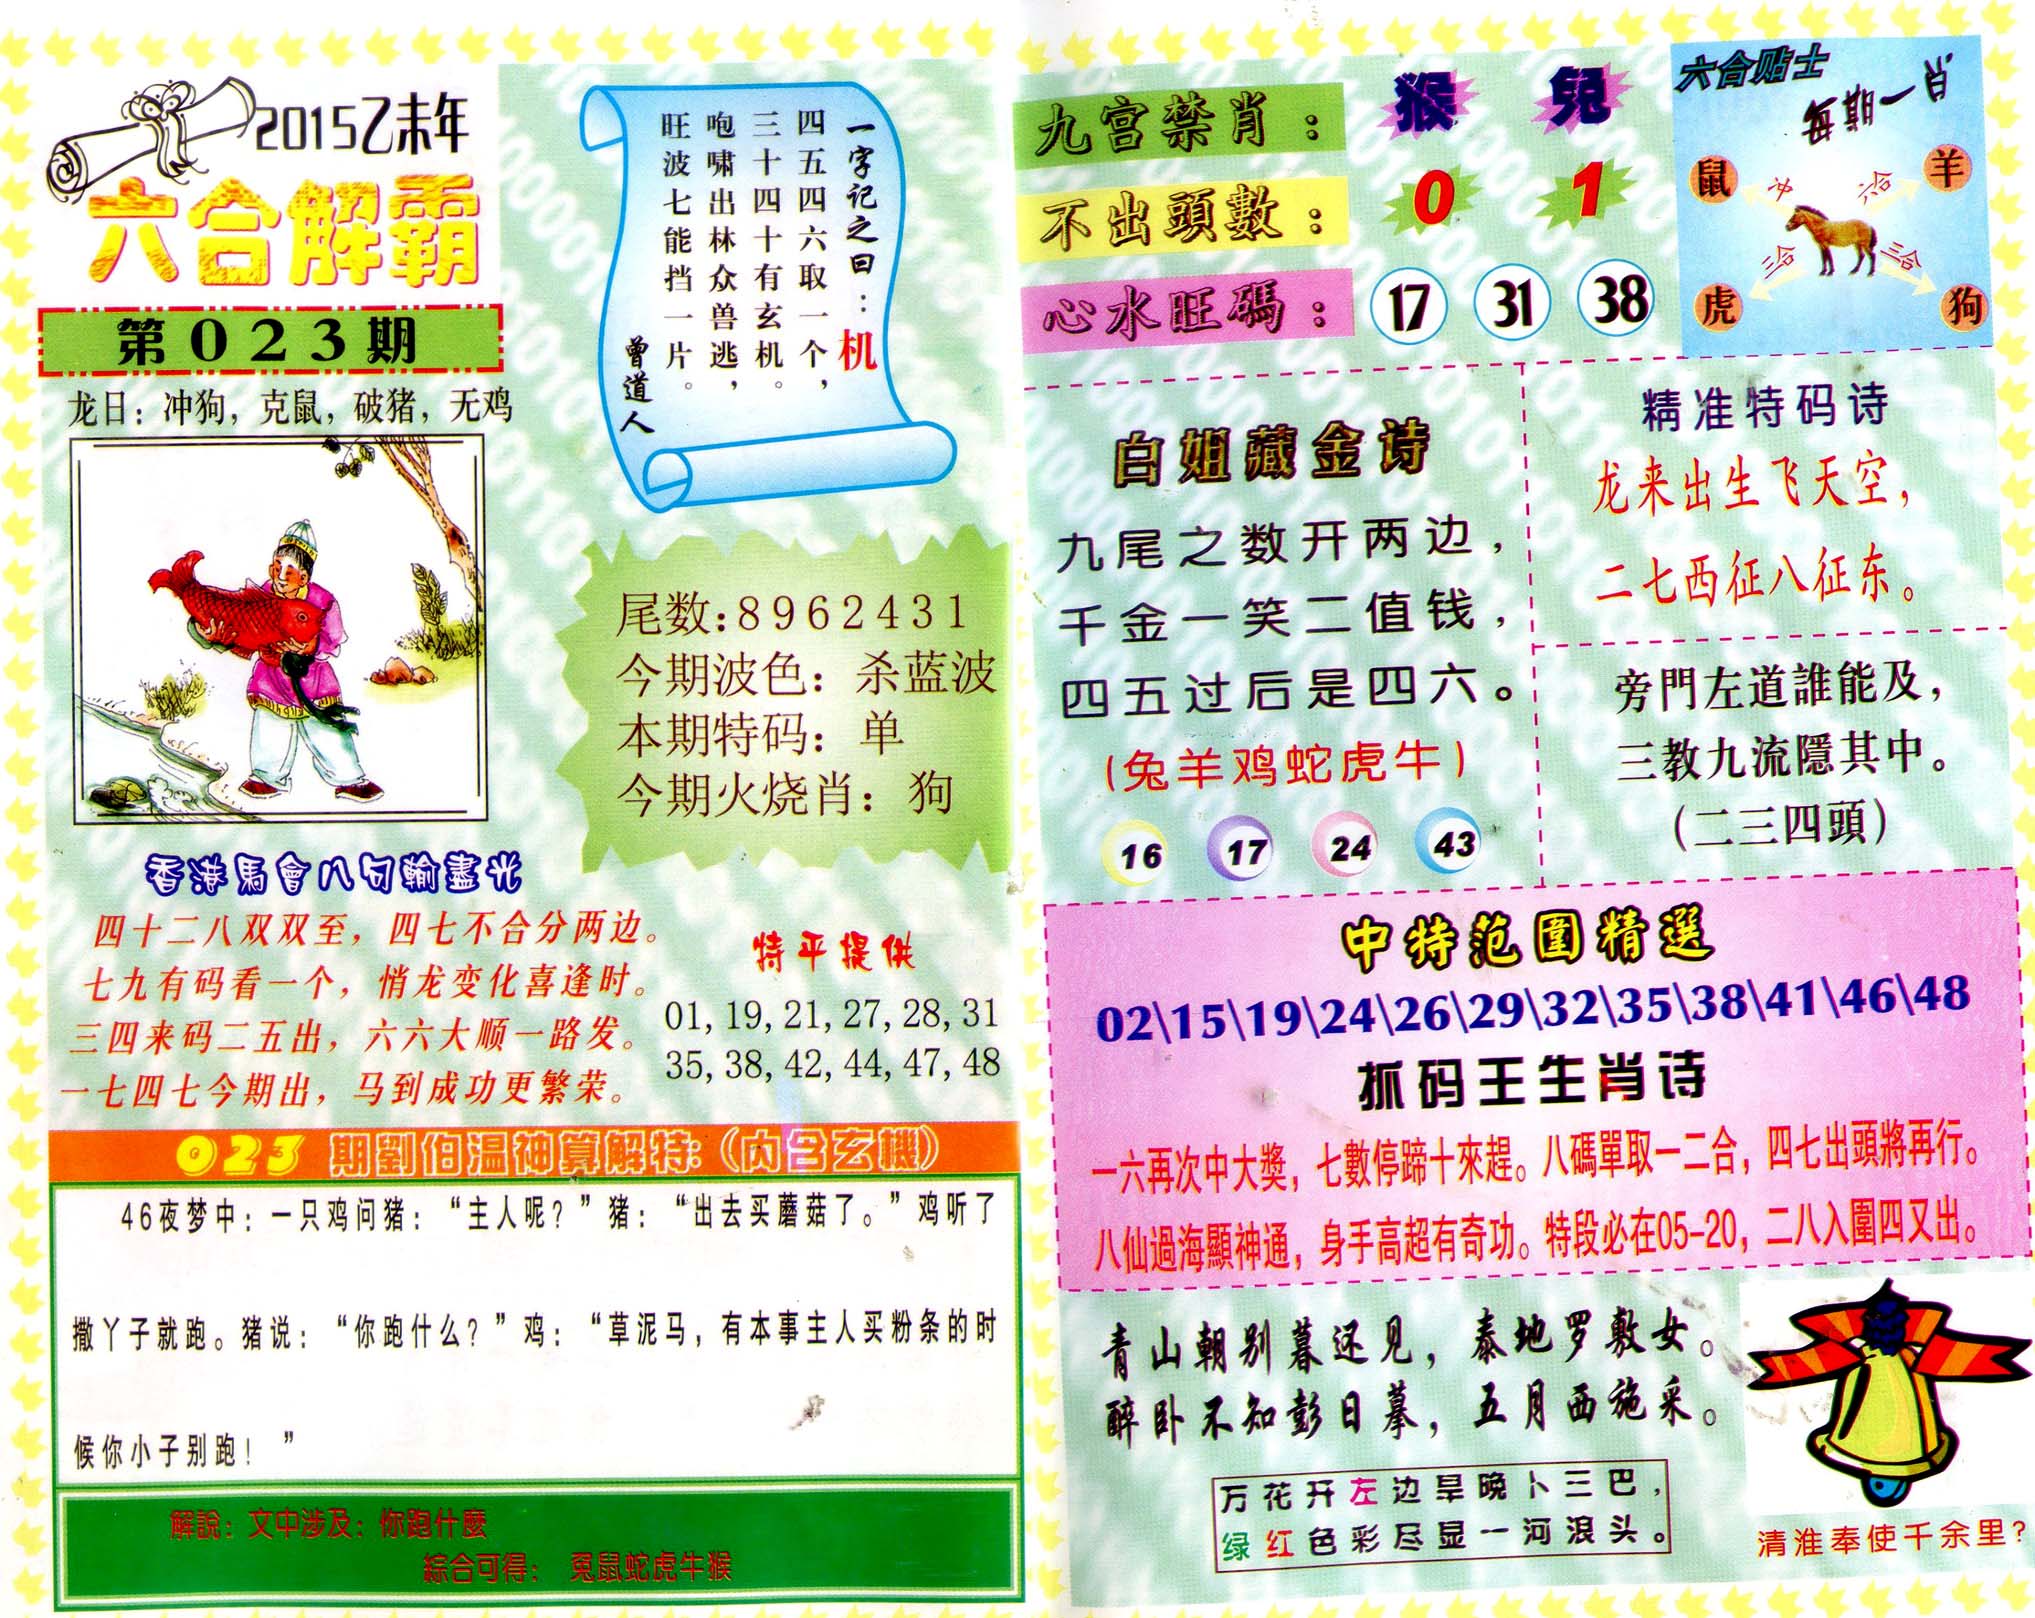 2015乙未年
六合解霸
第023期
龙日：冲狗，克鼠，破猪，无鸡
一字记之曰：机
四五四六取一个，
三十四十有玄机。
咆啸出林众兽逃，
旺波七能挡一片。
曾道人
尾数：8962431
今期波色：杀蓝波
本期特码：单
今期火烧肖：狗
香港馬會八句輸盡光
四十二八双双至，四七不合分两边。
七九有码看一个，悄龙变化喜逢时。
三四来码二五出，六六大顺一路发。
一七四七今期出，马到成功更繁荣。
特平提供
01,19,21,27,28,31
35,38,42,44,47,48
023 期劉伯温神算解特：（内含玄機）
46夜梦中：一只鸡问猪：“主人呢？”猪：“出去买蘑菇了。”鸡听了
撒丫子就跑。猪说：“你跑什么？”鸡：“草泥马，有本事主人买粉条的时
候你小子别跑！”
解說：文中涉及：你跑什麼
綜合可得： 兔鼠蛇虎牛猴
九宫禁肖： 猴 兔
不出頭數： 0 1
心水旺碼： 17 31 38
六合贴士
每期一肖
鼠 冲 六合 羊
虎 三合 三合 狗
白姐藏金诗
九尾之数开两边，
千金一笑二值钱，
四五过后是四六。
(兔羊鸡蛇虎牛)
16 17 24 43
精准特码诗
龙来出生飞天空，
二七西征八征东。
旁門左道誰能及，
三教九流隱其中。
（二三四頭）
中特范圍精選
02\15\19\24\26\29\32\35\38\41\46\48
抓码王生肖诗
一六再次中大獎，七數停蹄十來趕。八碼單取一二合，四七出頭將再行。
八仙過海顯神通，身手高超有奇功。特段必在05-20，二八入圍四又出。
青山朝别暮还见，泰地罗敷女。
醉卧不知彭日摹，五月西施采。
万花开左边旱晚卜三巴，
绿红色彩尽显一河浪头。
清淮奉使千余里？